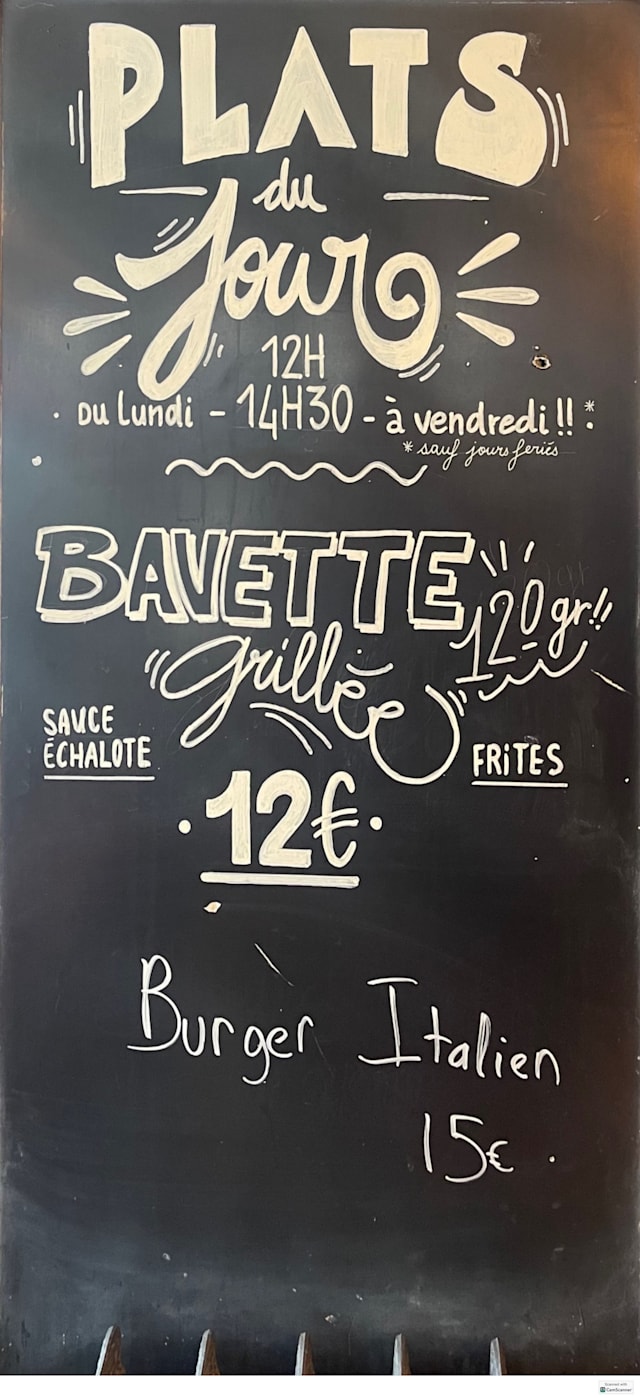 PLATS
du
Jour
12H
. DU Lundi - 14H30 - à vendredi !! * .
* sauf jours feriés
BAVETTE
120 gr.!!
grillée
SAUCE
ÉCHALOTE
FRITES
. 12€ .
Burger Italien
15€ .
Scanned with
CamScanner